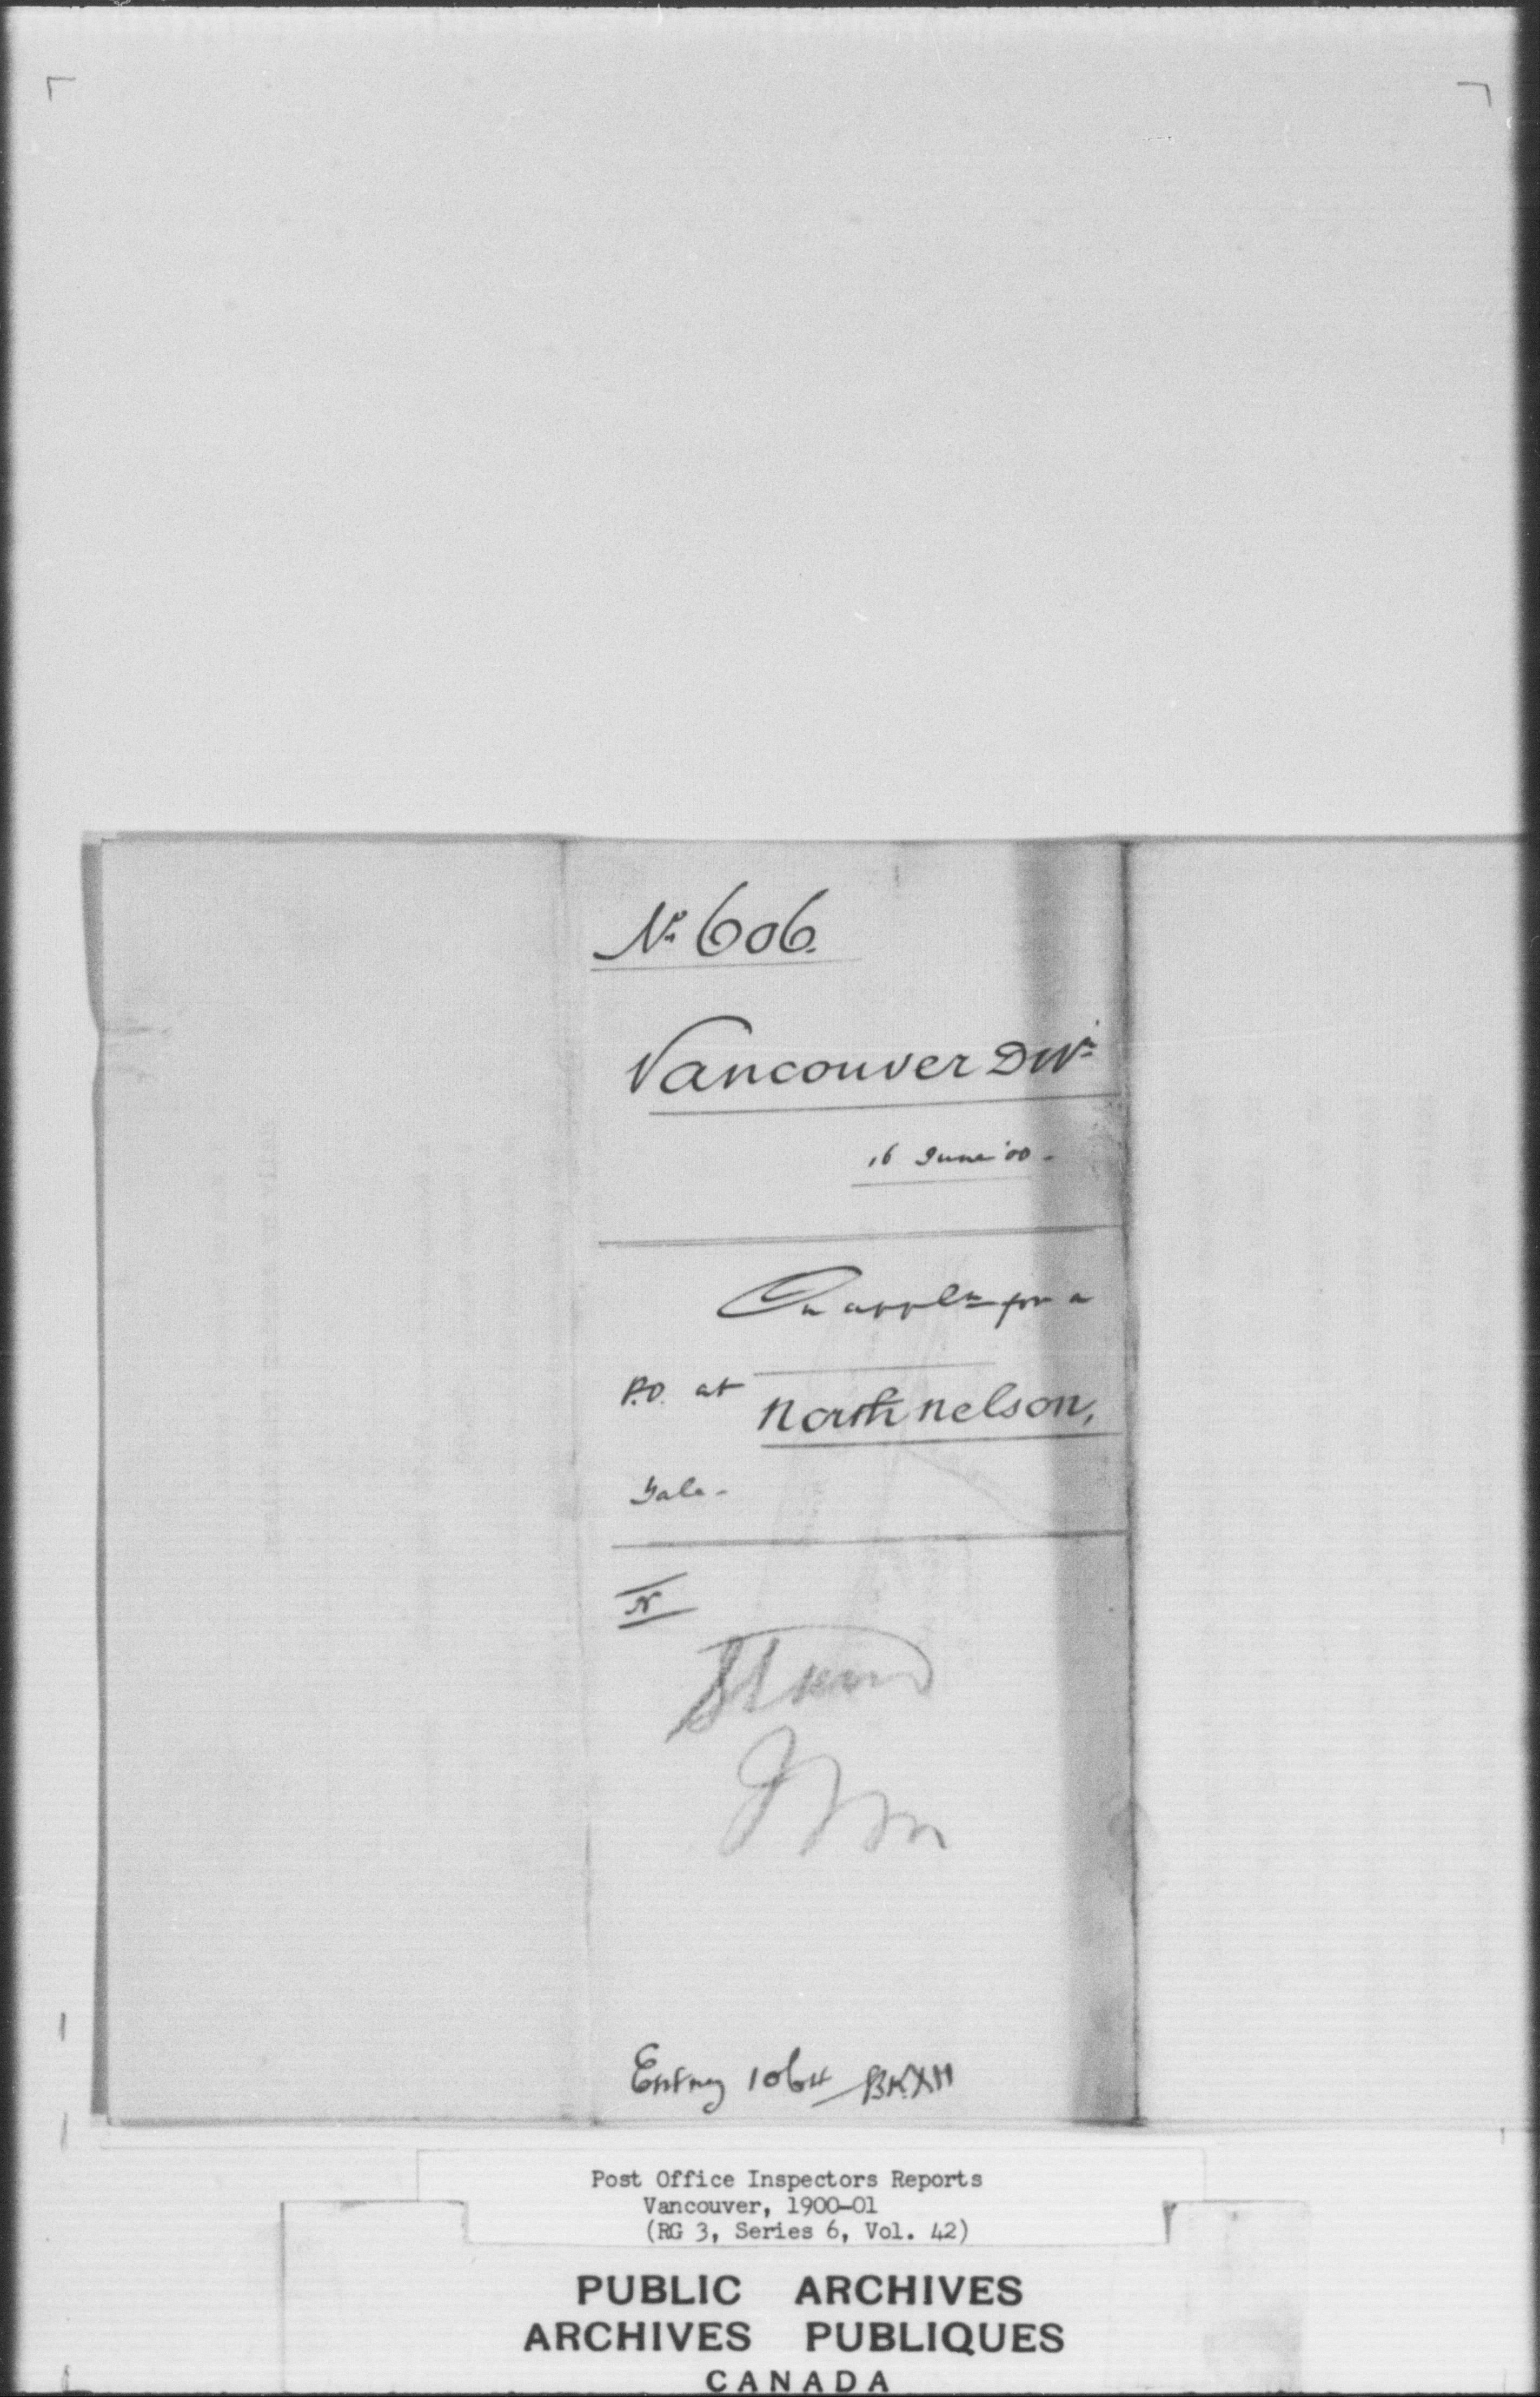 No 606.
Vancouver Divn
16 June '00 -
On appln for a
P.O. at North Nelson,
Yale -
N
Entry 1064
Post Office Inspectors Reports
Vancouver, 1900-01
(RG 3, Series 6, Vol. 42)
PUBLIC ARCHIVES
ARCHIVES PUBLIQUES
CANADA